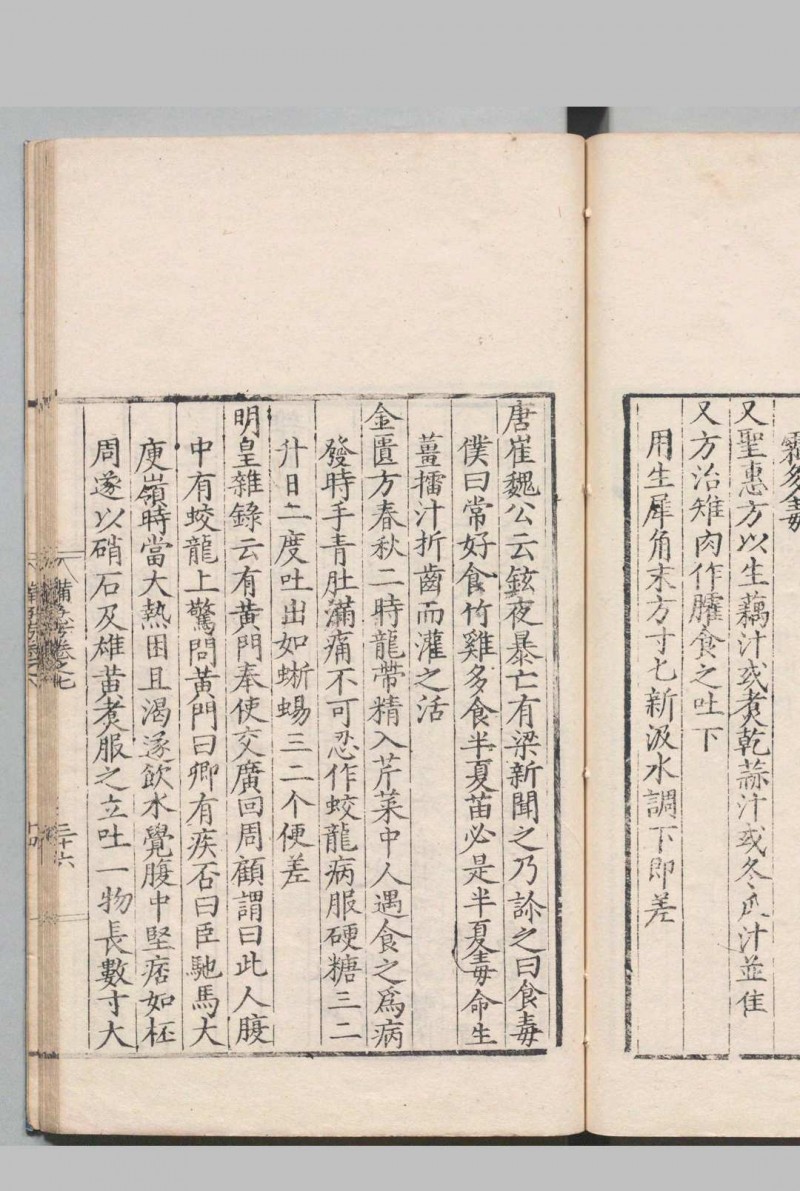 霜多毒
又聖惠方以生藕汁或煮乾蒜汁或冬瓜汁並佳
又方治雉肉作臛食之吐下
用生犀角末方寸匕新汲水調下即差
唐崔魏公云鉉夜暴亡有梁新聞之乃診之曰食毒
僕曰常好食竹雞多食半夏苗必是半夏毒命生
薑擂汁折齒而灌之活
金匱方春秋二時龍帶精入芹菜中人遇食之爲病
發時手青肚滿痛不可忍作蛟龍病服硬糖三二
升日二度吐出如蜥蜴三二个便差
明皇雜錄云有黃門奉使交廣回周顧謂曰此人腹
中有蛟龍上驚問黃門曰卿有疾否曰臣馳馬大
庾嶺時當大熱困且渴遂飲水覺腹中堅痞如柸
周遂以硝石及雄黃煮服之立吐一物長數寸大
備急卷之七
三十六